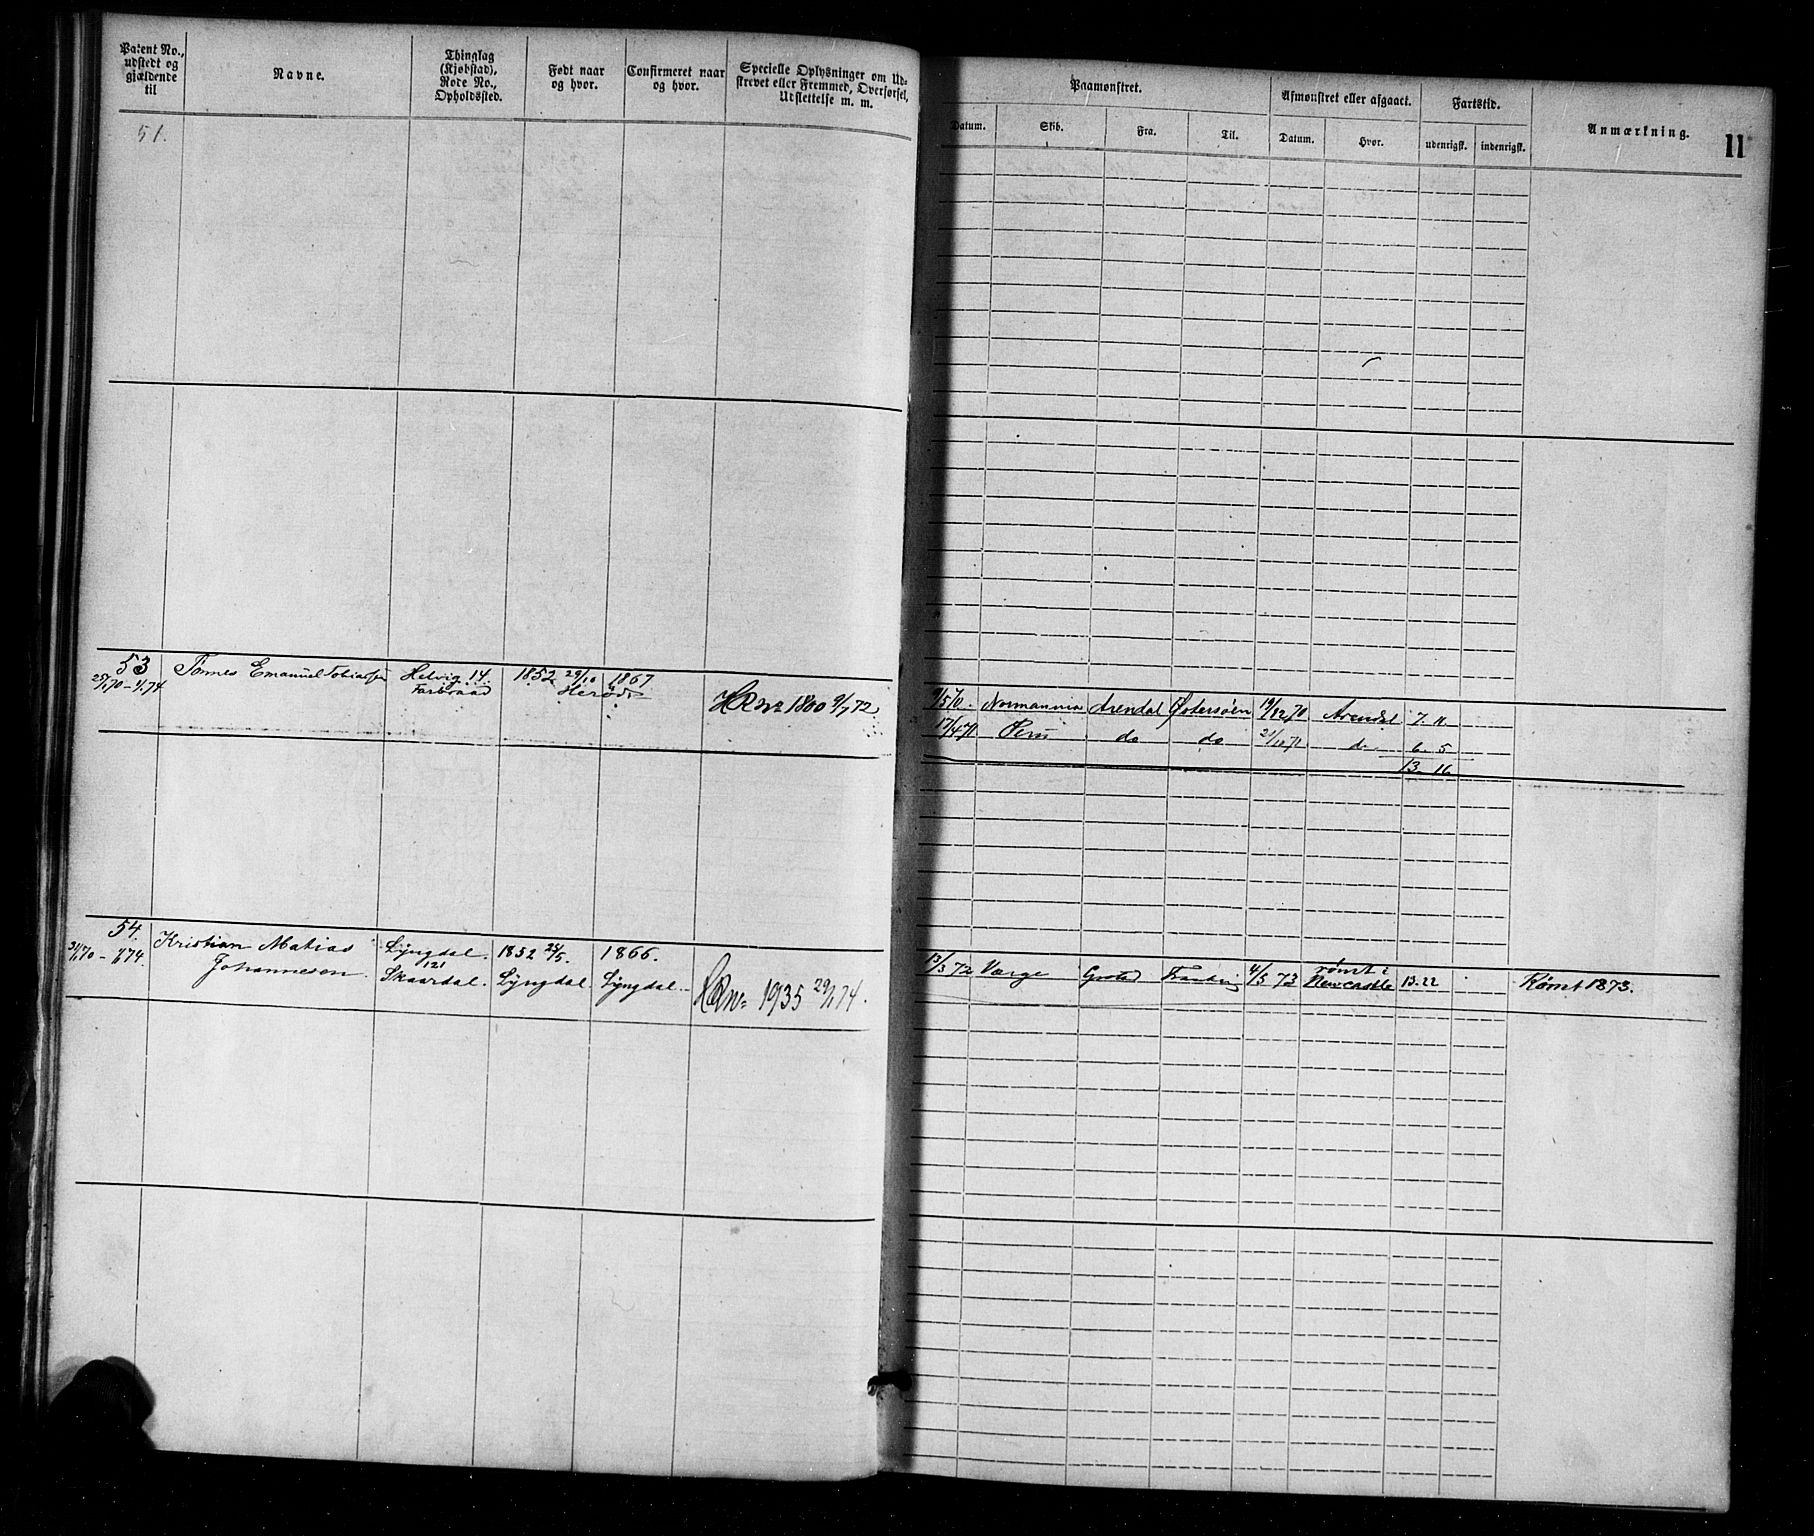 Patent No., udstedt og gjældende til
Navne.
Thinglag (Kjøbstad), Rode No., Opholdssted.
Født naar og hvor.
Confirmeret naar og hvor.
Specielle Oplysninger om Udskrevet eller Fremmed, Overførsel, Udslettelse m. m.
Paamønstret.
Afmønstret eller afgaaet.
Fartstid.
Anmærkning.
11
Datum.
Skib.
Fra.
Til.
Datum.
Hvor.
udenrigsk.
indenrigsk.
51.
53
Tønnes Emanuel Tobiassen
Helvig 14.
1852 29/10
1867
25/1 70 - 1/1 74
HRno 1800 9/1 72
9/5 70. Normannia Arendal Østersøen 19/12 70 Arendal 7. 11.
17/4 71 Peru do do 21/10 71 do 6. 5
13. 16
54.
Kristian Matias
Lyngdal.
1852 25/5.
1866.
31/1 70 - 1/1 74.
Johannesen.
121
Skaardal.
Lyngdal.
Lyngdal.
HRno 1935 29/1 74.
13/3 72 Varge 4/5 73 rømt i Newcastle 13. 22
Rømt 1873.